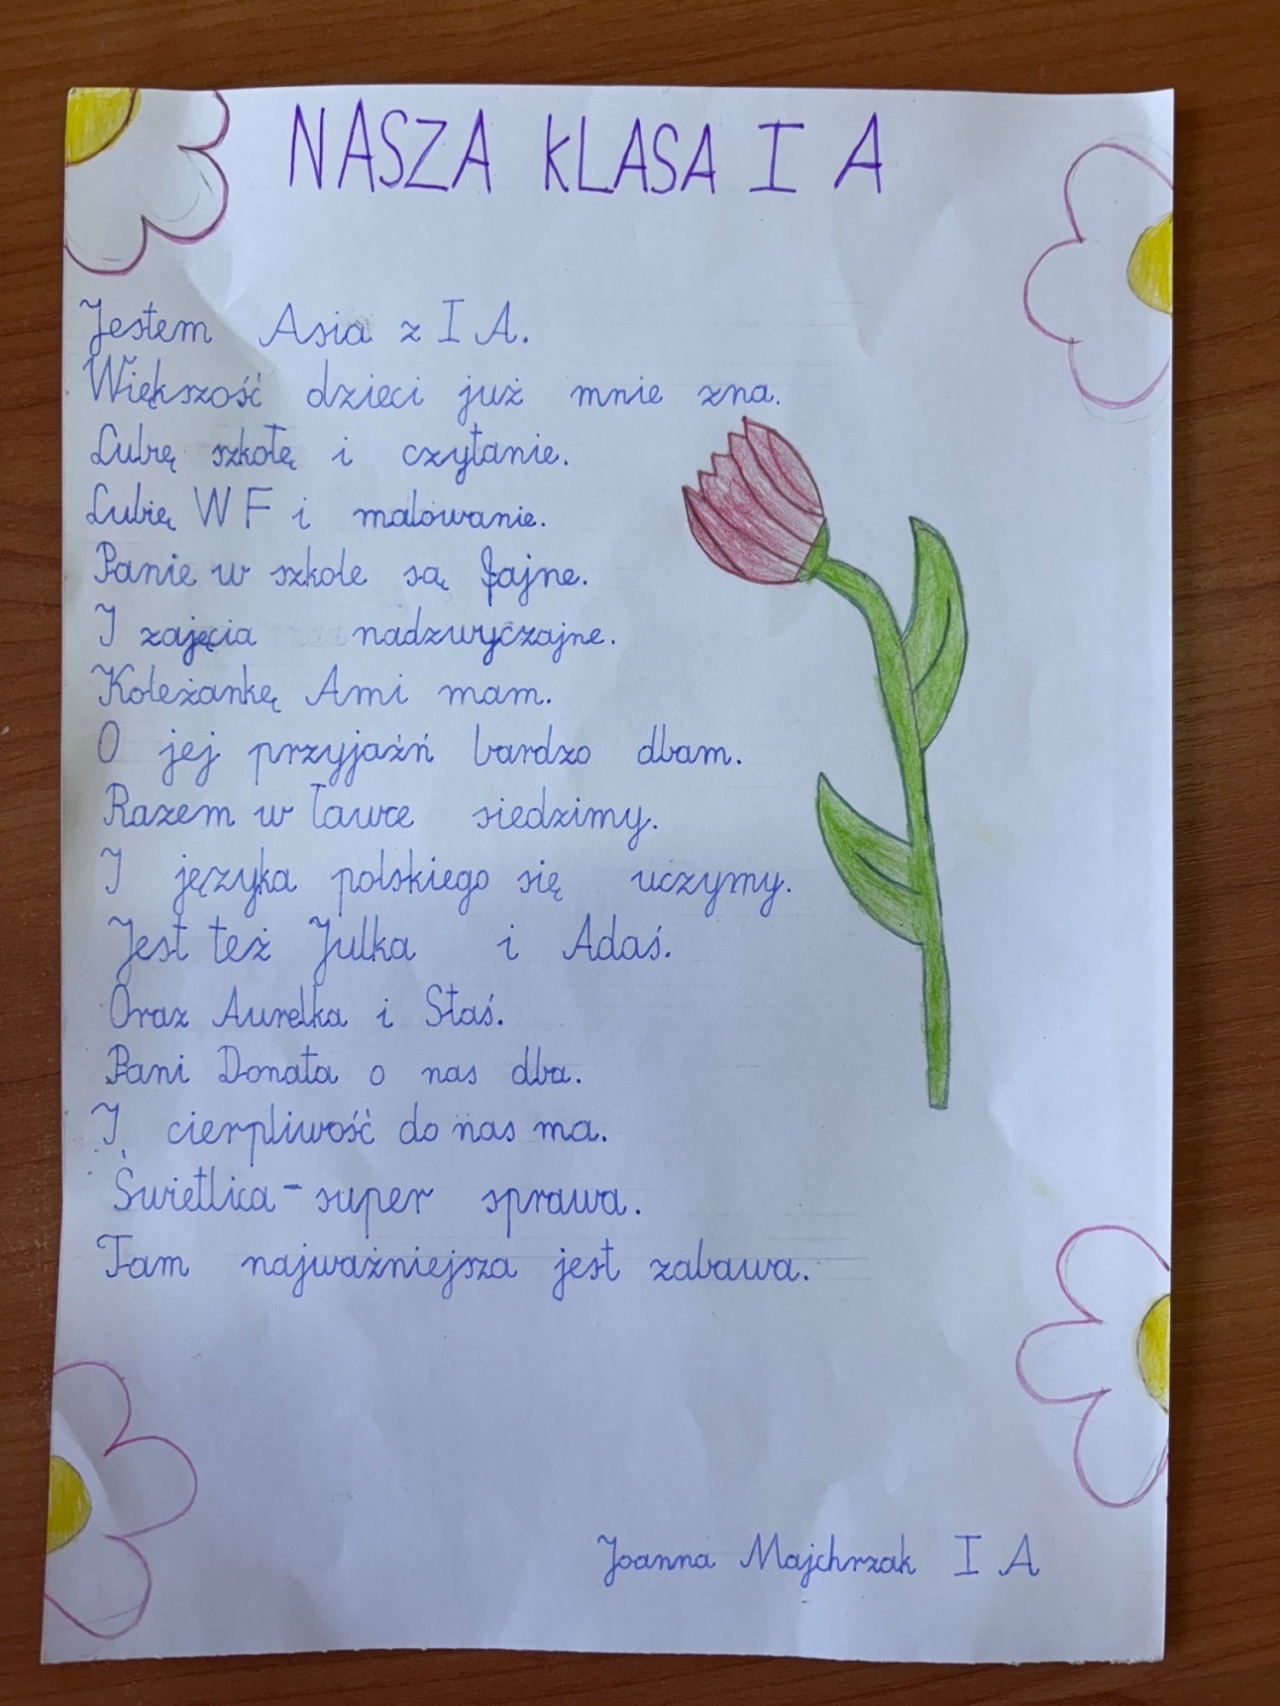 NASZA KLASA I A
Jestem Asia z I A.
Większość dzieci już mnie zna.
Lubię szkołę i czytanie.
Lubię WF i malowanie.
Panie w szkole są fajne.
I zajęcia nadzwyczajne.
Koleżankę Ami mam.
O jej przyjaźń bardzo dbam.
Razem w ławce siedzimy.
I języka polskiego się uczymy.
Jest też Julka i Adaś.
Oraz Aurelka i Staś.
Pani Donata o nas dba.
I cierpliwość do nas ma.
Świetlica - super sprawa.
Tam najważniejsza jest zabawa.
Joanna Majchrzak I A